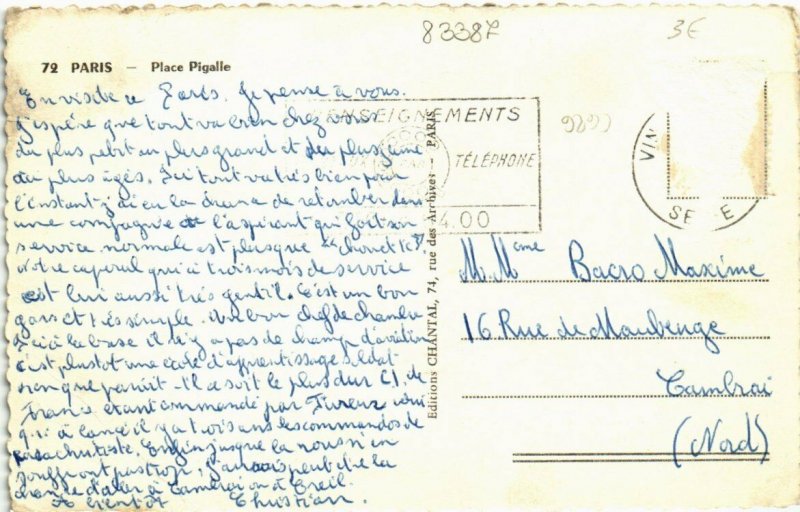 83387
3€
72 PARIS — Place Pigalle
En visite a Paris. Je pense à vous.
J'espère que tout va bien chez vous
du plus petit au plus grand et du plus jeune
au plus âgés. Ici tout va très bien pour
l'instant j'ai eu la chance de retomber dans
une compagnie où l'aspirant qui fait son
service normale est plus que "chouette"
Notre caporal qui a trois mois de service
est lui aussi très gentil. C'est un bon
gars et très simple. Un bon chef de chambre
Ici à la base il n'y a pas de champ d'aviation
c'est plustot une école d'apprentissage soldat
rien que parait-il ce soit le plus dur C.I. de
France étant commandé par
qui à lancé il y a trois ans les commandos de
parachutiste. Enfin jusque la nous n'en
souffront pas trop. J'aurais peut être la
chance d'aller à Cambrai ou à Creil.
A bientôt Christian.
ENSEIGNEMENTS
TÉLÉPHONE
4.00
9899
VIN
SE E
Editions CHANTAL, 74, rue des Archives — PARIS
M. Mme Bacro Maxime
16 Rue de Maubeuge
Cambrai
(Nord)